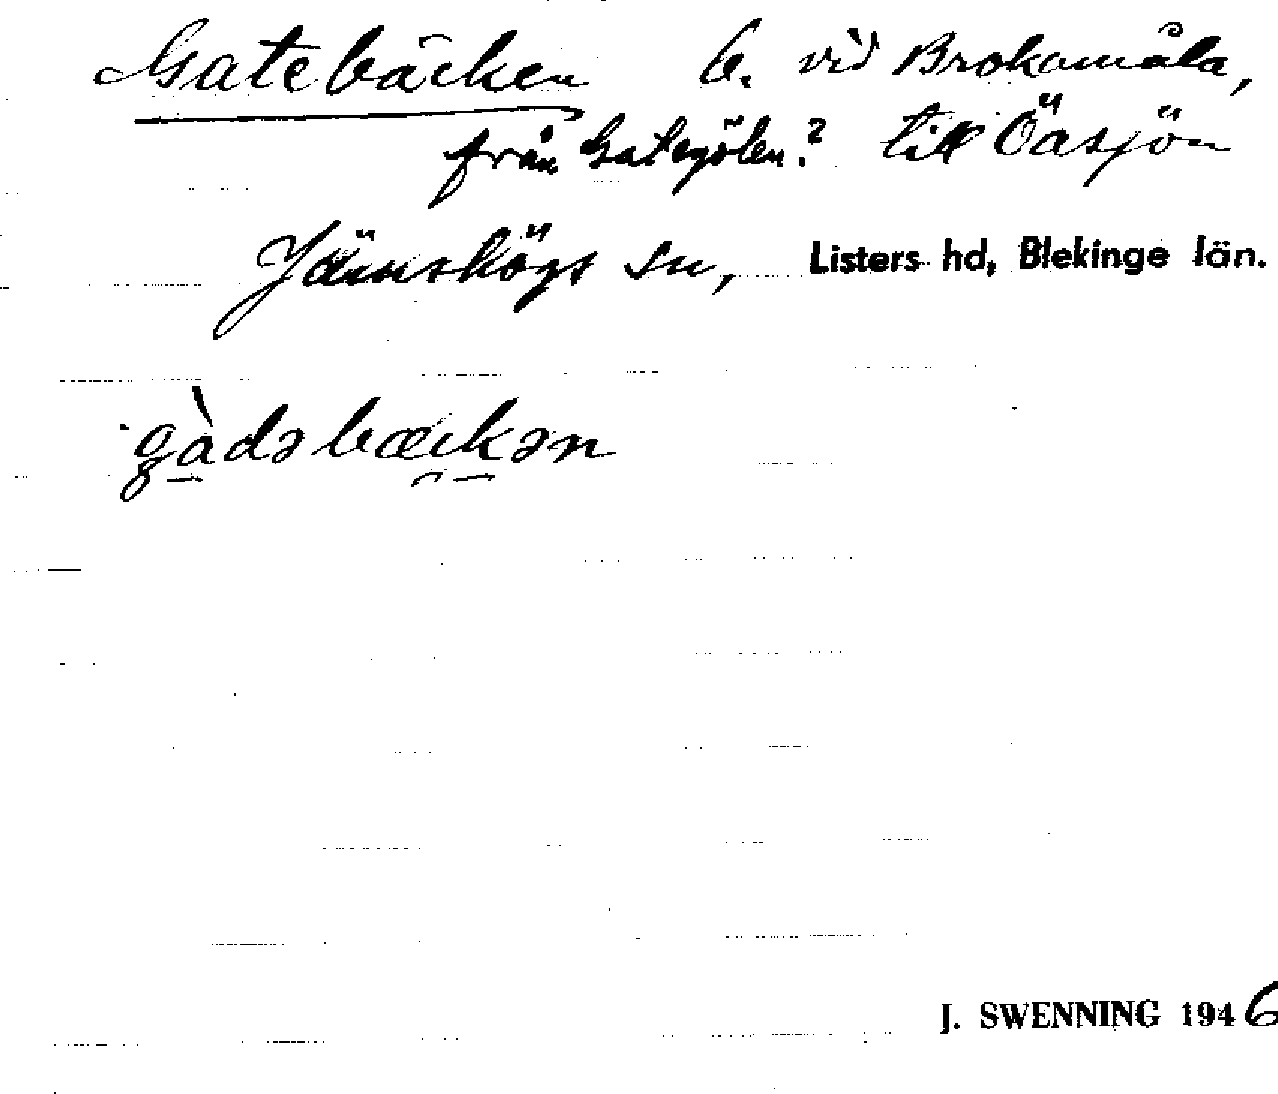 Gatebäcken b. vid Brokamåla,
från Gategölen? till Öasjön
Jämshögs sn, Listers hd, Blekinge län.
gàdəbæckən
J. SWENNING 1946